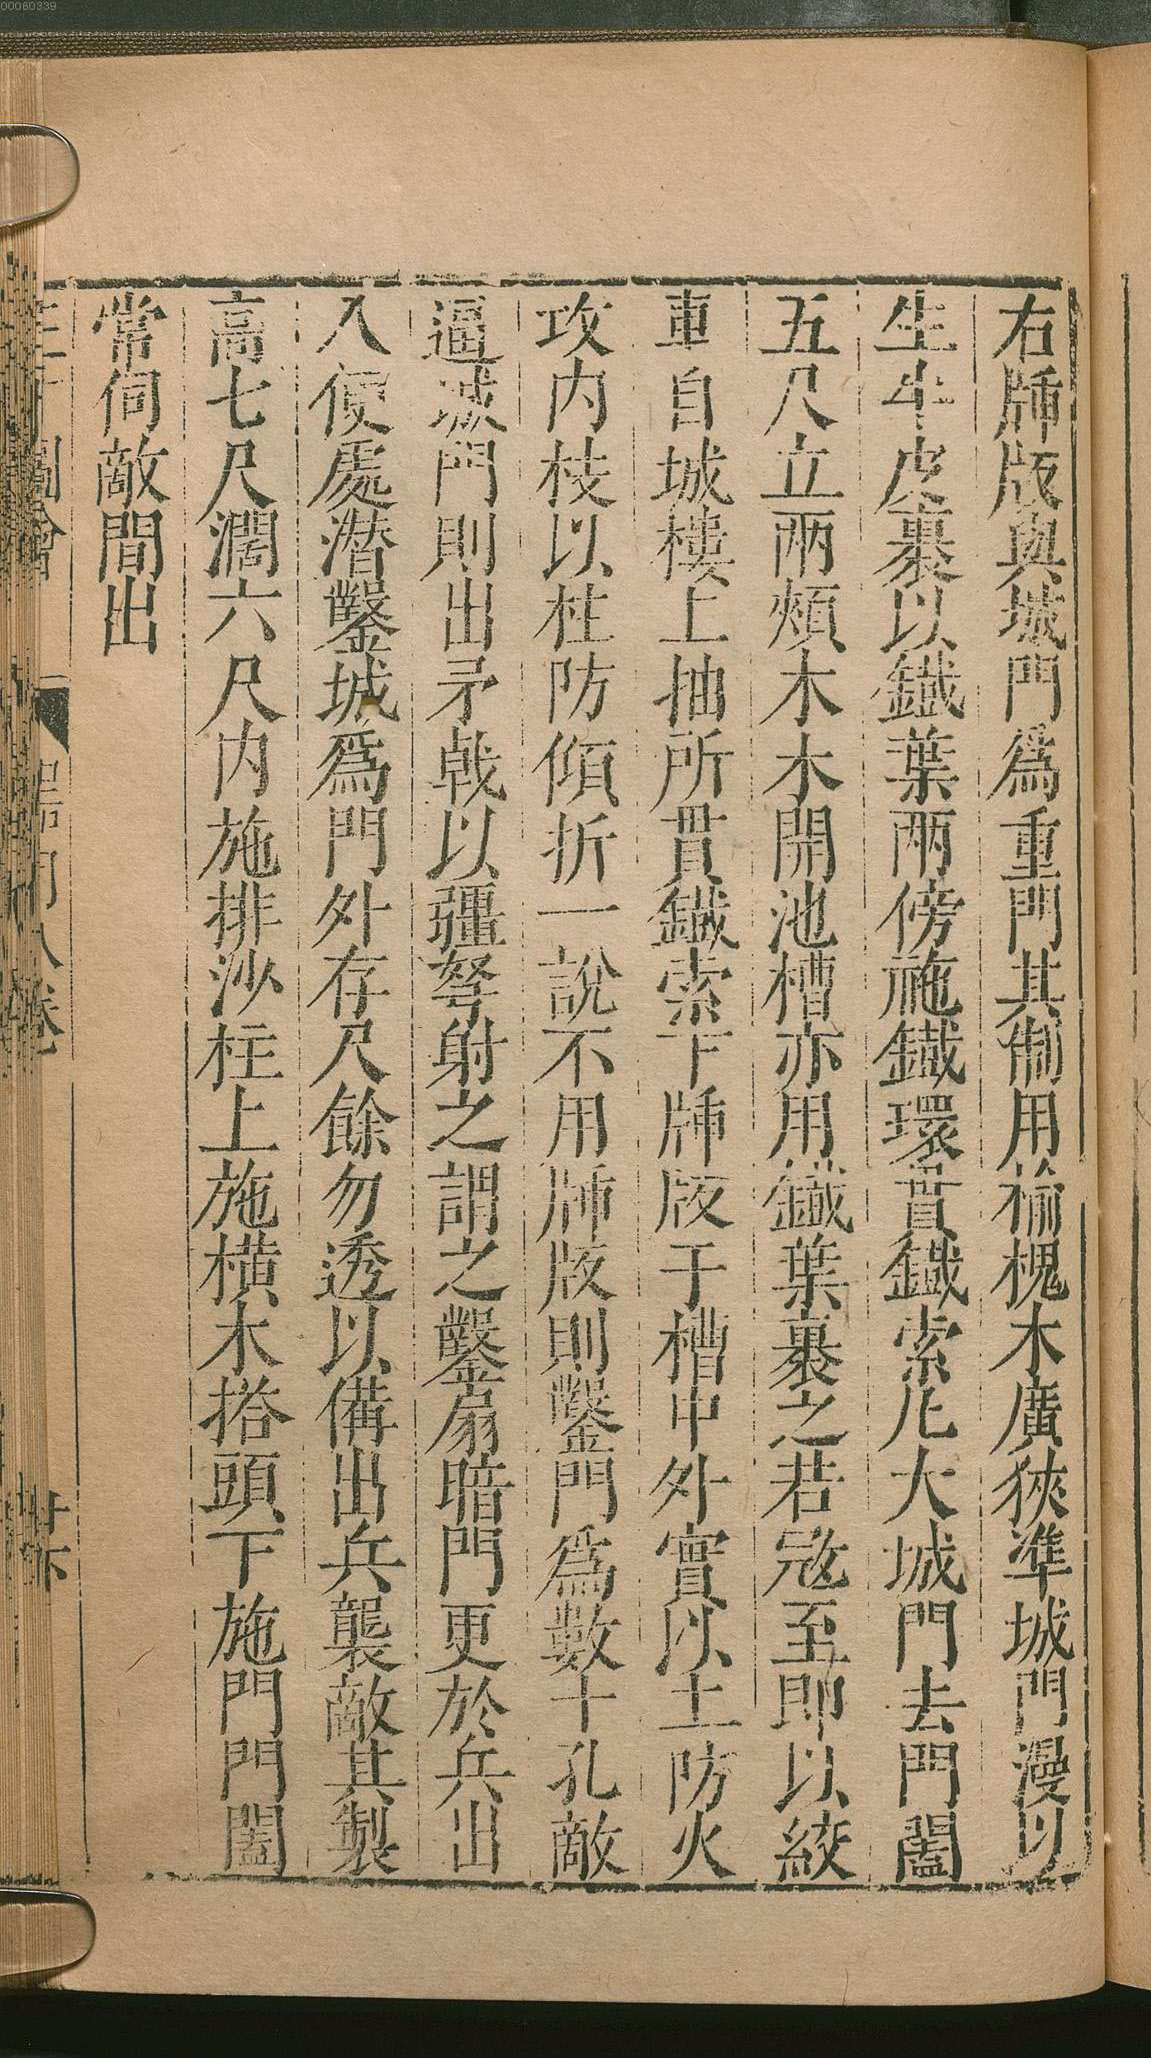 右牐版與城門爲重門其制用榆槐木廣狹準城門漫以
生牛皮裹以鐵葉兩傍施鐵環貫鐵索凡大城門去門闔
五尺立兩頰木木開池槽亦用鐵葉裹之若寇至即以絞
車自城樓上抽所貫鐵索下牐版于槽中外實以土防火
攻内枝以柱防傾折一說不用牐版則鑿門爲數十孔敵
逼城門則出矛戟以疆弩射之謂之鑿扇暗門更於兵出
入便處潛鑿城爲門外存尺餘勿透以備出兵襲敵其製
高七尺濶六尺内施排沙柱上施横木搭頭下施門門闔
常伺敵間出
三才圖會
器用八卷
00060339